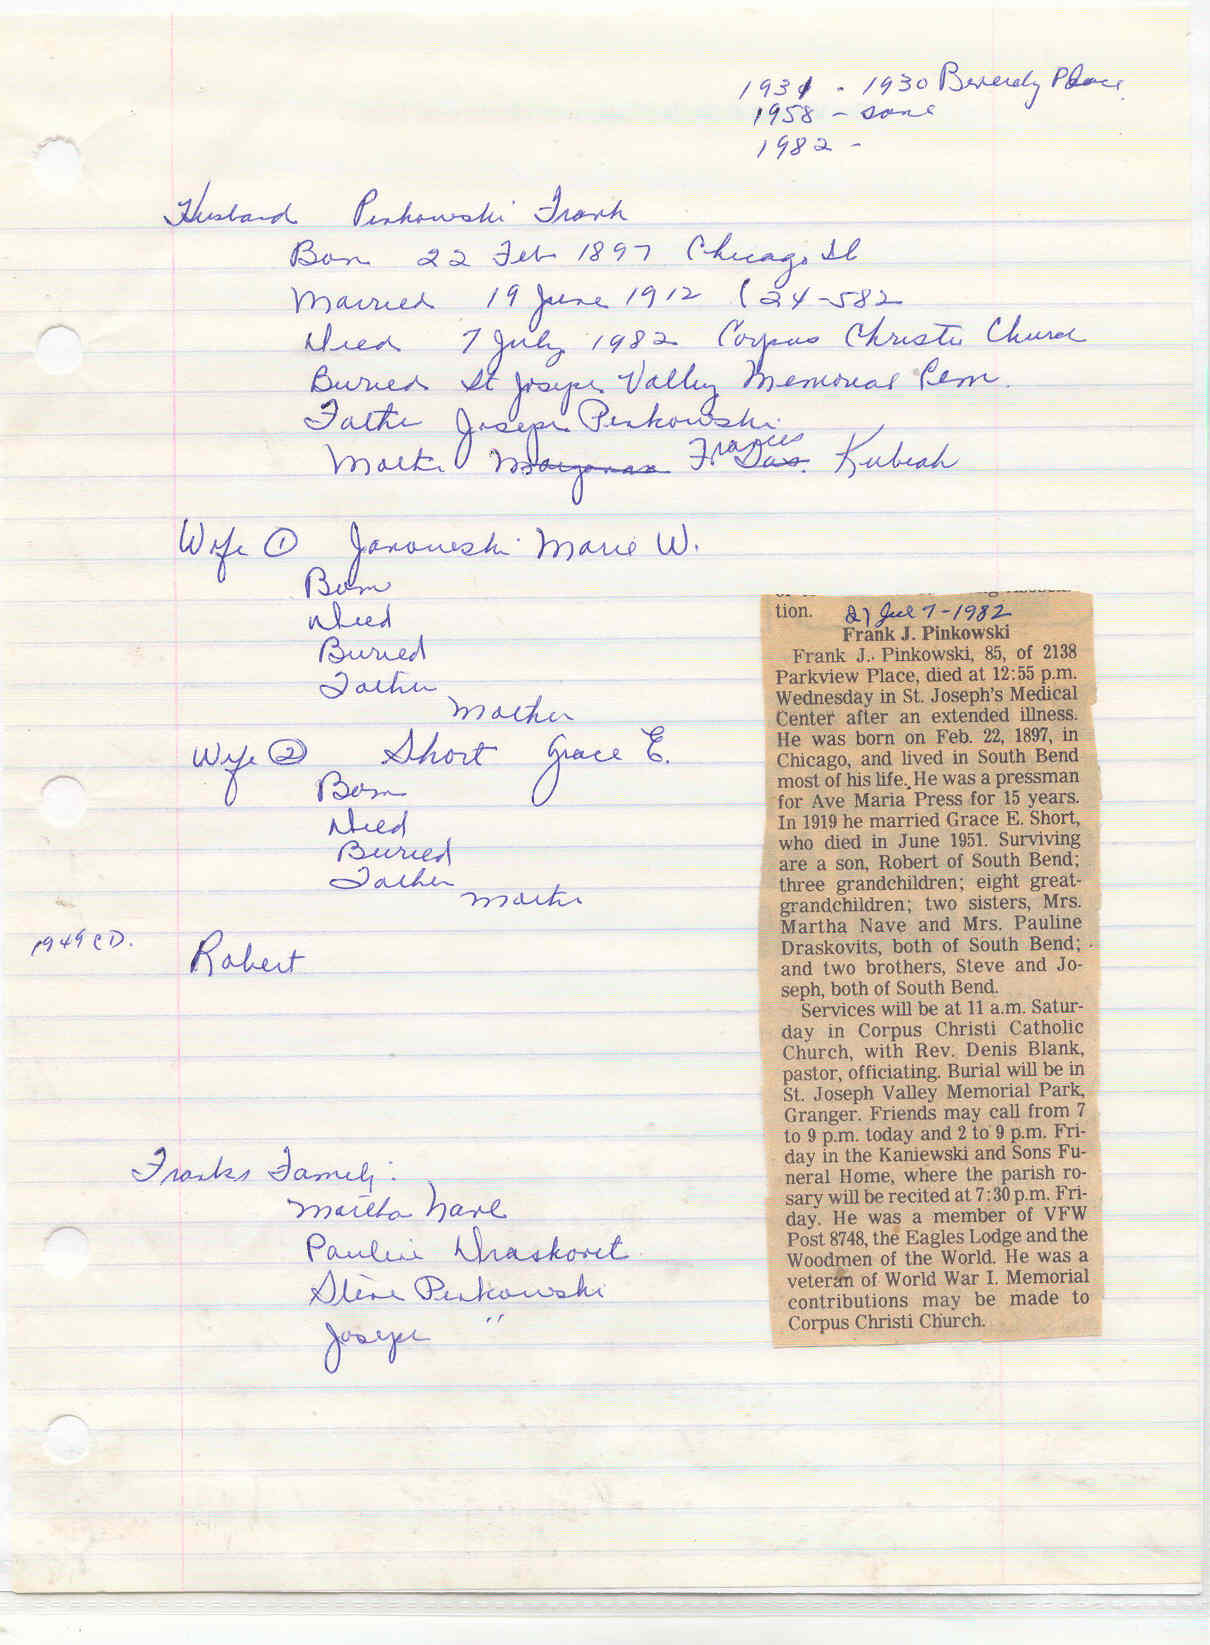 1931 - 1930 Beverly Place
1958 - same
1982 -
Husband Pinkowski Frank
Born 22 Feb 1897 Chicago Il
Married 19 June 1912 (24-582
Died 7 July 1982 Corpus Christi Church
Buried St Joseph Valley Memorial Cem.
Father Joseph Pinkowski
Mother Frances Kubiak
Wife ① Janowski Marie W.
Born
Died
Buried
Father
Mother
Wife ② Short Grace E.
Born
Died
Buried
Father
Mother
1949 CD. Robert
Franks Family:
Martha Nave
Pauline Draskovit
Steve Pinkowski
Joseph "
tion. 2) Jul 7-1982
Frank J. Pinkowski
Frank J. Pinkowski, 85, of 2138
Parkview Place, died at 12:55 p.m.
Wednesday in St. Joseph's Medical
Center after an extended illness.
He was born on Feb. 22, 1897, in
Chicago, and lived in South Bend
most of his life. He was a pressman
for Ave Maria Press for 15 years.
In 1919 he married Grace E. Short,
who died in June 1951. Surviving
are a son, Robert of South Bend;
three grandchildren; eight great-
grandchildren; two sisters, Mrs.
Martha Nave and Mrs. Pauline
Draskovits, both of South Bend;
and two brothers, Steve and Jo-
seph, both of South Bend.
Services will be at 11 a.m. Satur-
day in Corpus Christi Catholic
Church, with Rev. Denis Blank,
pastor, officiating. Burial will be in
St. Joseph Valley Memorial Park,
Granger. Friends may call from 7
to 9 p.m. today and 2 to 9 p.m. Fri-
day in the Kaniewski and Sons Fu-
neral Home, where the parish ro-
sary will be recited at 7:30 p.m. Fri-
day. He was a member of VFW
Post 8748, the Eagles Lodge and the
Woodmen of the World. He was a
veteran of World War I. Memorial
contributions may be made to
Corpus Christi Church.